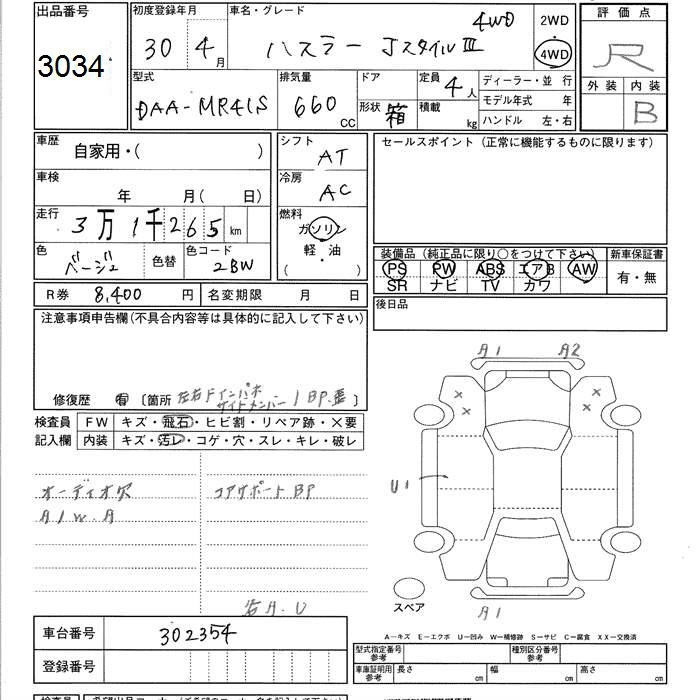 出品番号
3034
初度登録年月
30 4月
車名・グレード
ハスラー JスタイルⅢ 4WD
2WD
・
4WD
評価点
R
外装 内装
B
型式
DAA-MR41S
排気量
660 CC
ドア
形状 箱
定員 4人
積載 kg
ディーラー・並行
モデル年式 年
ハンドル 左・右
車歴
自家用・( )
車検
年 月(日)
走行
3万1千265 km
色
ベージュ
色替
色コード
2BW
シフト
AT
冷房
AC
燃料
ガソリン
・
軽・油
( )
セールスポイント(正常に機能するものに限ります)
装備品(純正品に限り○をつけて下さい)
PS PW ABS エアB AW
SR ナビ TV カワ
新車保証書
有・無
後日品
R券 8,400 円
名変期限 月 日
注意事項申告欄(不具合内容等は具体的に記入して下さい)
修復歴 有 [箇所 左右Fインパネ
サイドメンバー / BP.要]
検査員
記入欄
FW キズ・飛石・ヒビ割・リペア跡・×要
内装 キズ・汚レ・コゲ・穴・スレ・キレ・破レ
オーディオ欠
A1W.A
コアサポートBP
A1 A2
U1
スペア
A1
A—キズ E—エクボ U—凹み W—補修跡 S—サビ C—腐食 XX—交換済
車台番号
302354
登録番号
型式指定番号
参考
種別区分番号
参考
車庫証明用
参考
長さ cm
幅 cm
高さ cm